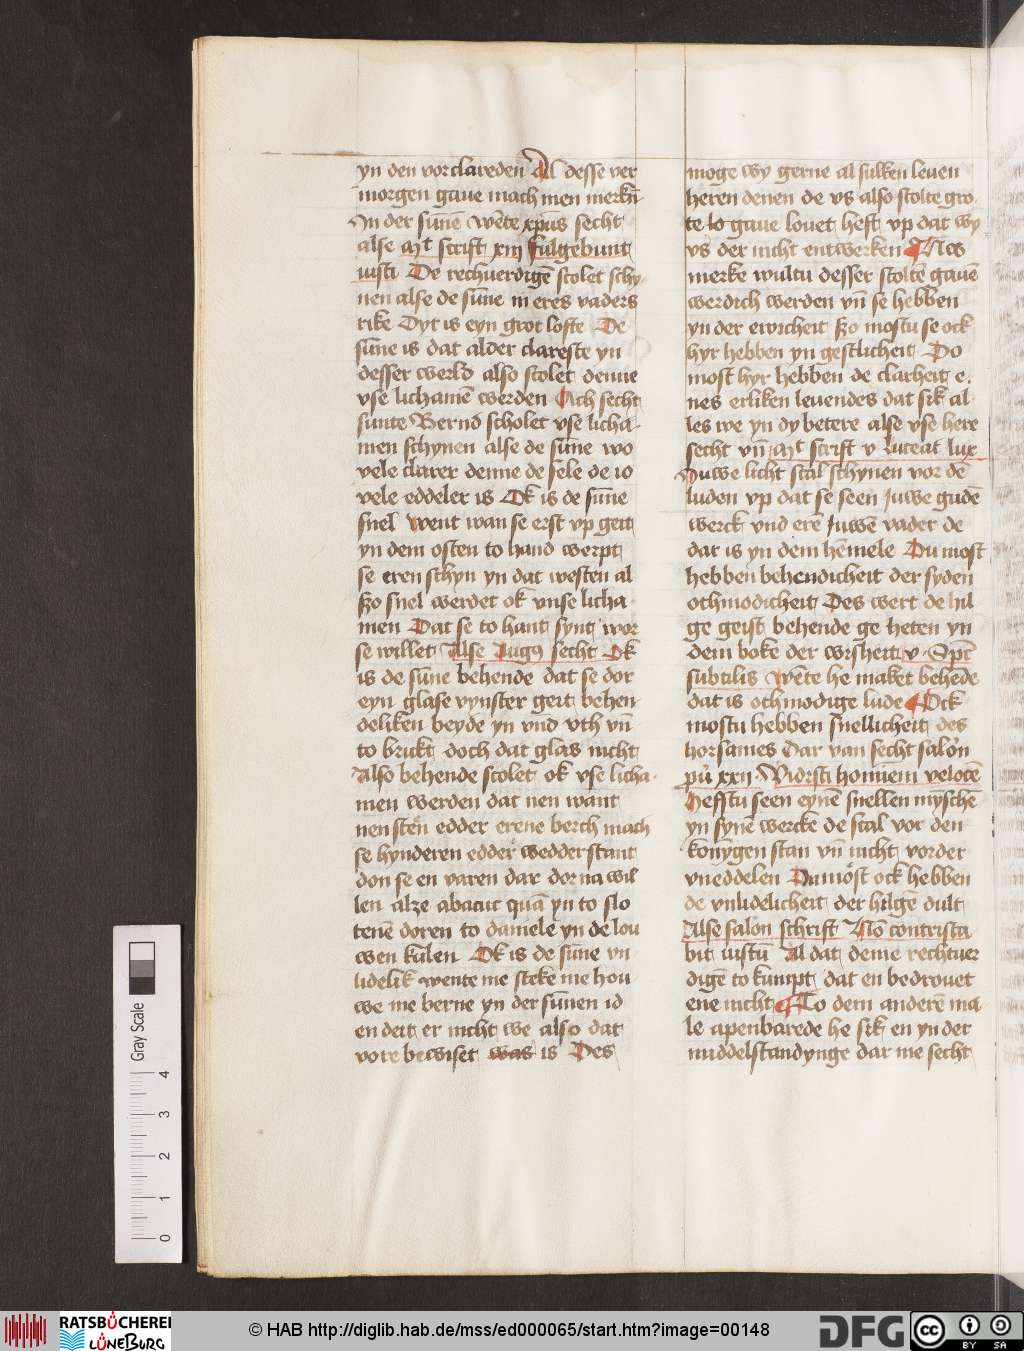 yn den vorclareden Al desse ver
morgen gaue mach men merkn̄
In der sūne wēte xp̄us secht
alse mt̄ scrift xiij fulgebunt
iusti De rechuerdigē scolet schy
nen alse de sūne in eres vaders
rike Dyt is eyn grot lofte De
sūne is dat alder clareste yn
desser werld also scolet denne
vse lichamē werden Ach secht
sunte Bernd scholet vse licha
men schynen alse de sūne wo
vele clarer denne de sele de io
vele eddeler is Ok is de sūne
snel went wan se erst vp geit
yn dem osten to hand werpt
se eren schyn yn dat westen al
szo snel werdet ok vnse licha
men Dat se to hant synt wor
se willet Alse Augꝰ secht Ok
is de sūne behende dat se dor
eyn glase vynster geit behen
deliken beyde yn vnd vth vn̄
to brickt doch dat glas nicht
Also behende scolet ok vse licha
men werden dat nen want
nen sten edder erene berch mach
se hynderen edder wedderstant
don se en varen dar dor na wil
len alze abacuc quā yn to slo
tenē doren to daniele yn de lou
wen kulen Ok is de sūne vn
lidelik wente me steke me hou
we me berne yn der sūnen id
en deit er nicht we also dat
vore bewiset was is Des
moge wy gerne al sulken leuen
heren denen de vs also stolte gro
te lo gaue louet heft vp dat wy
vs der nicht entwerken Nw
merke wultu desser stoltē gauē
werdich werden vn̄ se hebben
yn der ewicheit szo mostu se ock
hyr hebben yn gestlicheit Do
most hyr hebben de clarheit e
nes erliken leuendes dat sik al
les we yn dy betere alse vse here
secht vn̄ mt̄ scrift v Luceat lux
Iuwe licht scal schynen vor dē
luden vp dat se seen Juwe gudē
werck vnd erē Juwē vader de
dat is yn dem hēmele Du most
hebben behendicheit der syden
othmodicheit Des wert de hil
ge geist behende ge heten yn
dem boke der wisheit v Sp̄c
subtilis wēte he maket behēde
dat is othmodige lude Ock
mostu hebben snellicheit des
horsames Dar van secht salōn
pū xxii Vidisti hominem velocē
Hefstu seen eynē snellen mȳschē
yn synē wercke de scal vor den
konyngen stan vn̄ nicht vorder
vneddelen Du most ock hebben
de vnlidelicheit der hilgē dult
Alse salōn schrift Nō contrista
bit iustū Al dat deme rechtuer
digē to kumpt dat en bedrouet
ene nicht To dem anderē ma
le apenbarede he sik en yn der
middelstandynge dar me secht
© HAB http://diglib.hab.de/mss/ed000065/start.htm?image=00148
RATSBÜCHEREI
LÜNEBURG
DFG
cc BY SA
Gray Scale
4
3
2
1
0